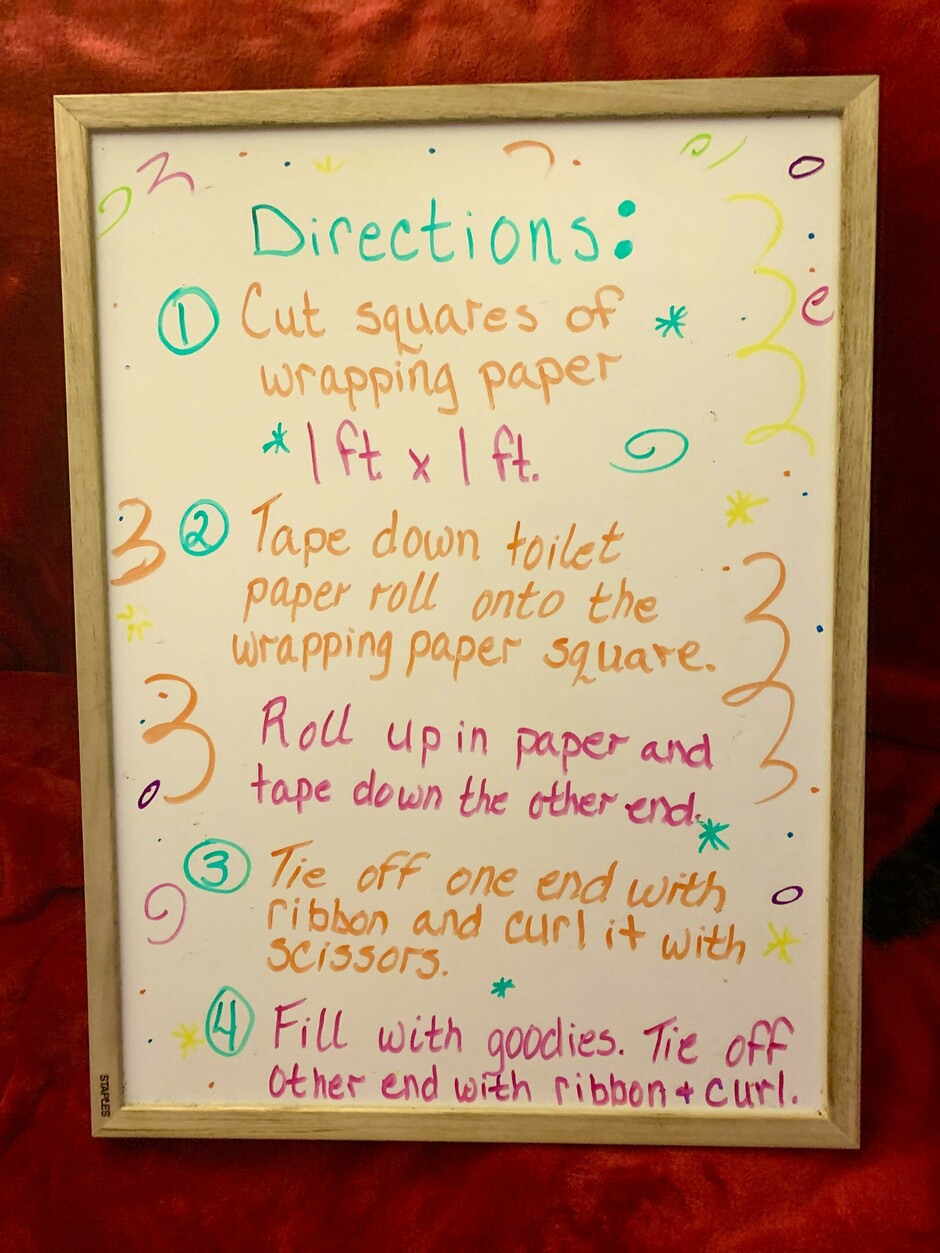 Directions:
1 Cut squares of
wrapping paper
* 1 ft. x 1 ft.
2 Tape down toilet
paper roll onto the
wrapping paper square.
Roll up in paper and
tape down the other end.
3 Tie off one end with
ribbon and curl it with
scissors.
4 Fill with goodies. Tie off
other end with ribbon + curl.
STAPLES